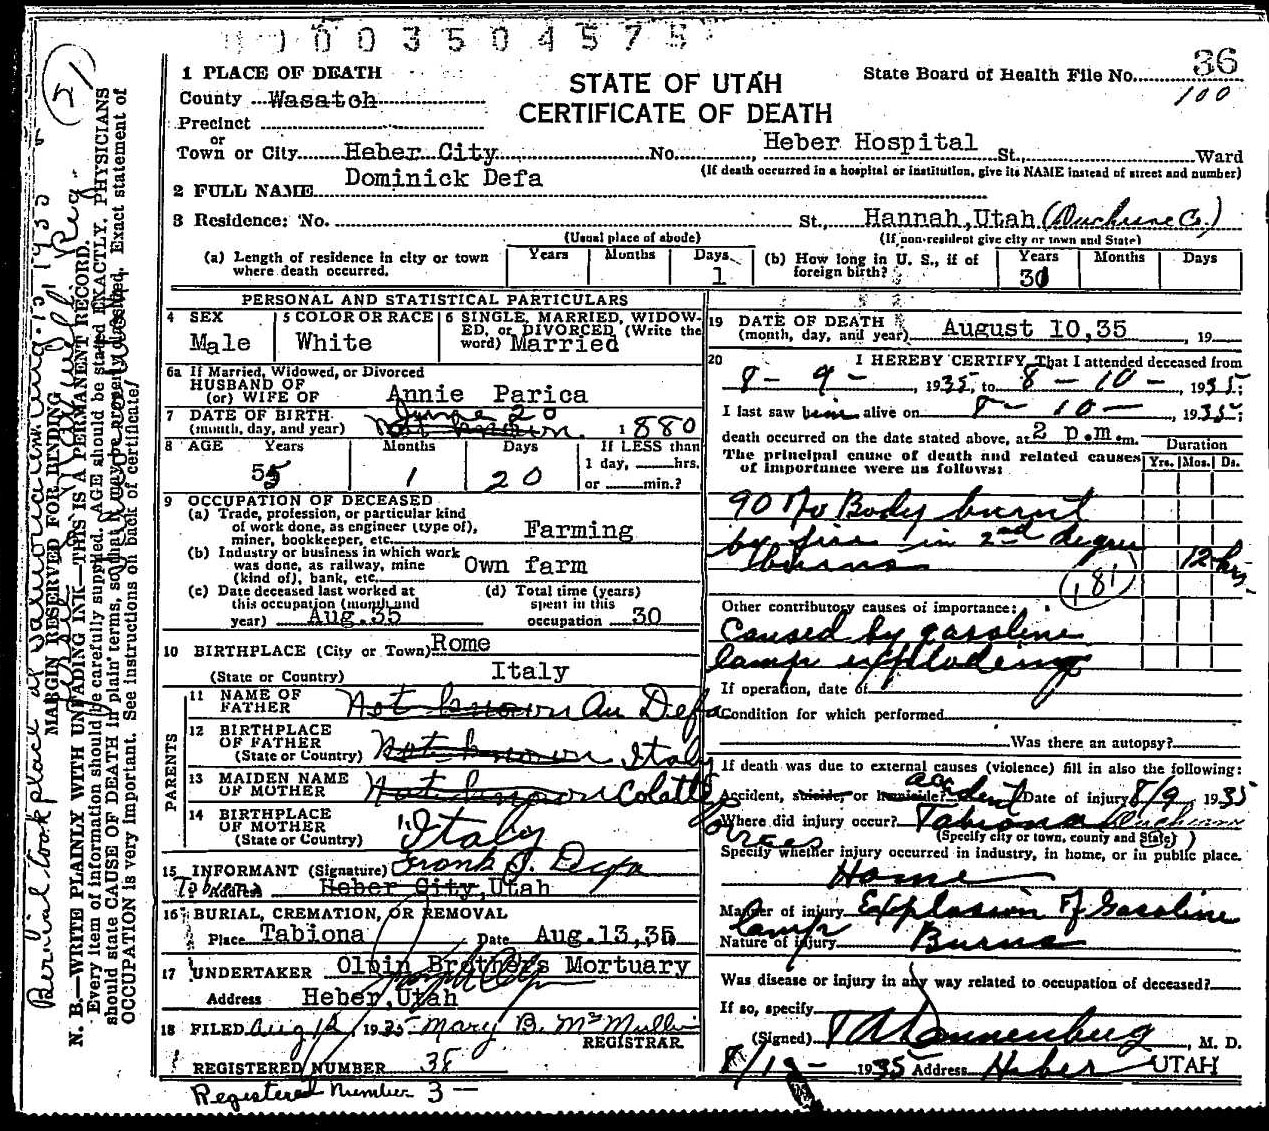 1003504575
36
1 PLACE OF DEATH
STATE OF UTAH
State Board of Health File No.
100
County Wasatch
CERTIFICATE OF DEATH
Precinct
or
Town or City Heber City No. Heber Hospital St., Ward
(If death occurred in a hospital or institution, give its NAME instead of street and number)
2 FULL NAME Dominick Defa
3 Residence: No. St., Hannah, Utah (Duchesne Co.)
(Usual place of abode) (If non-resident give city or town and State)
(a) Length of residence in city or town where death occurred. Years Months Days 1
(b) How long in U. S., if of foreign birth? Years 30 Months Days
PERSONAL AND STATISTICAL PARTICULARS
4 SEX Male
5 COLOR OR RACE White
6 SINGLE, MARRIED, WIDOWED, or DIVORCED (Write the word) Married
6a If Married, Widowed, or Divorced
HUSBAND OF
(or) WIFE OF Annie Parica
7 DATE OF BIRTH (month, day, and year) June 20 1880
Not known
8 AGE Years Months Days If LESS than
55 1 20 1 day, hrs.
or min.?
9 OCCUPATION OF DECEASED
(a) Trade, profession, or particular kind of work done, as engineer (type of), miner, bookkeeper, etc. Farming
(b) Industry or business in which work was done, as railway, mine (kind of), bank, etc. Own farm
(c) Date deceased last worked at this occupation (month and year) Aug. 35
(d) Total time (years) spent in this occupation 30
10 BIRTHPLACE (City or Town) Rome
(State or Country) Italy
PARENTS
11 NAME OF FATHER Not known Defa
12 BIRTHPLACE OF FATHER (State or Country) Not known Italy
13 MAIDEN NAME OF MOTHER Not known
14 BIRTHPLACE OF MOTHER (State or Country) " Italy
15 INFORMANT (Signature) Frank J. Defa
Tabiona Heber City, Utah
16 BURIAL, CREMATION, OR REMOVAL
Place Tabiona Date Aug. 13, 35
17 UNDERTAKER Olpin Brothers Mortuary
Address Heber, Utah
18 FILED Aug 12, 1935 Mary B. McMullin
REGISTRAR
REGISTERED NUMBER 38
Registered Number 3
19 DATE OF DEATH (month, day, and year) August 10, 35, 19
20 I HEREBY CERTIFY, That I attended deceased from
8-9-, 1935, to 8-10-, 1935;
I last saw him alive on 8-10-, 1935;
death occurred on the date stated above, at 2 p.m. m.
Duration
The principal cause of death and related causes of importance were as follows:
Yrs. Mos. Ds.
90 % Body burnt
by fire in 2nd degree
burns 12 hrs
181
Other contributory causes of importance:
Caused by gasoline
lamp exploding
If operation, date of
Condition for which performed
Was there an autopsy?
If death was due to external causes (violence) fill in also the following:
Accident, suicide, or homicide? accident Date of injury 8/9, 1935
Where did injury occur? Tabiona Duchesne
(Specify city or town, county and State)
Specify whether injury occurred in industry, in home, or in public place.
Home
Manner of injury Explosion of Gasoline
Lamp
Nature of injury Burns
Was disease or injury in any way related to occupation of deceased?
If so, specify
(Signed) Dannenburg, M. D.
1935 Address Heber UTAH
MARGIN RESERVED FOR BINDING
N. B.—WRITE PLAINLY WITH UNFADING INK—THIS IS A PERMANENT RECORD.
Every item of information should be carefully supplied. AGE should be stated EXACTLY. PHYSICIANS
should state CAUSE OF DEATH in plain terms, so that it may be properly classified. Exact statement of
OCCUPATION is very important. See instructions on back of certificate.
21